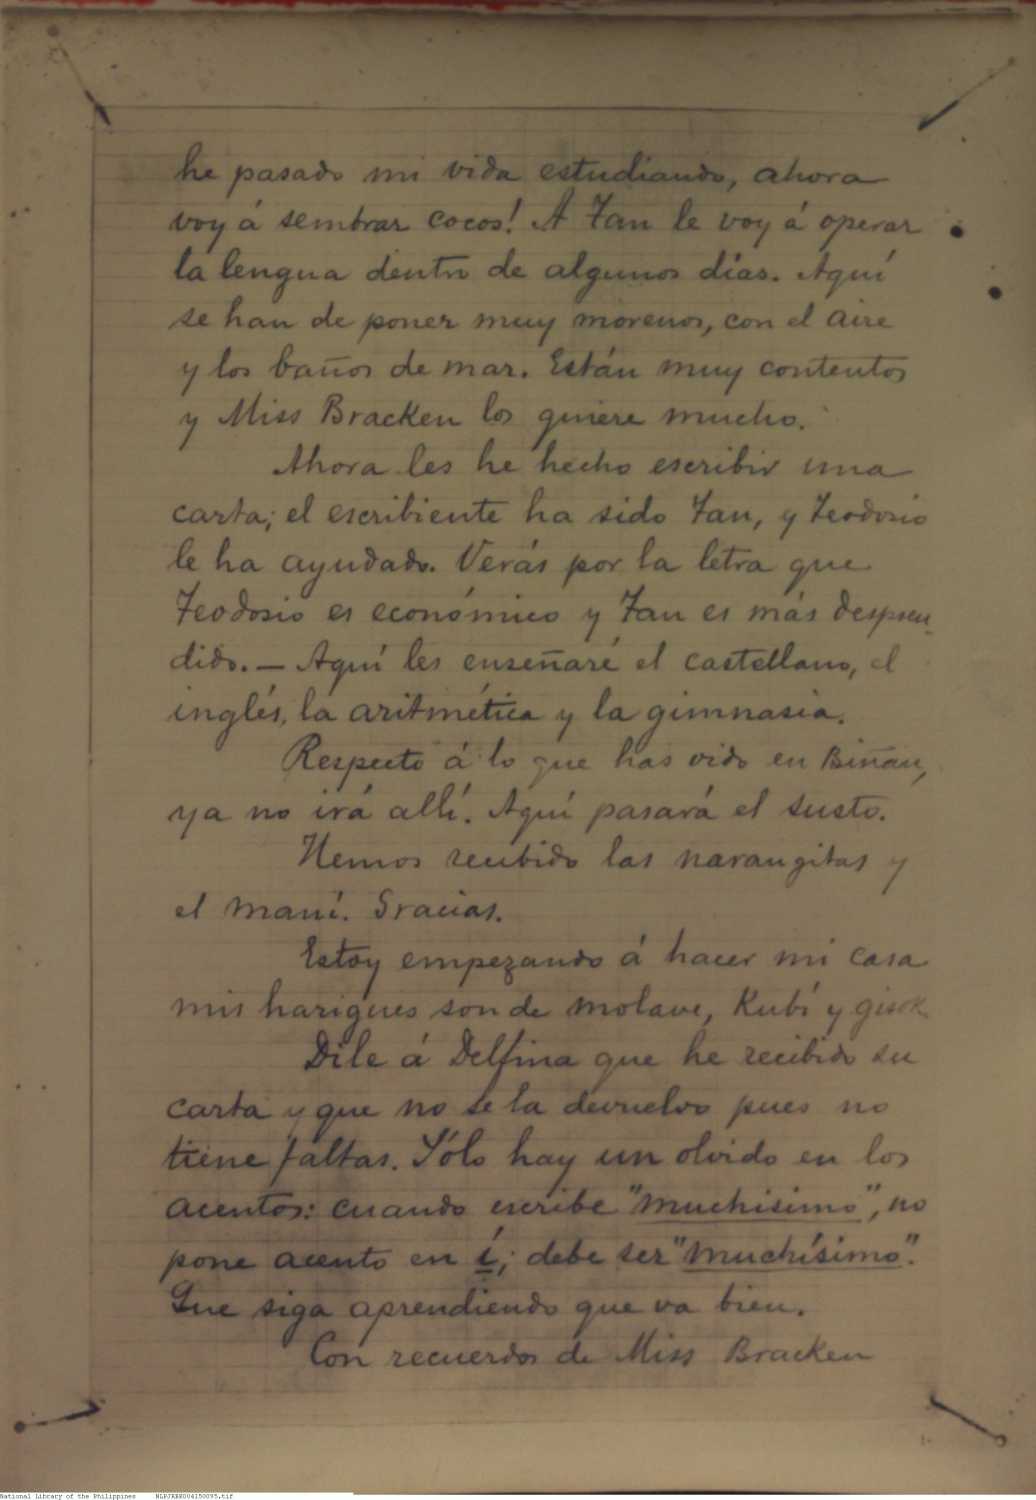 he pasado mi vida estudiando, ahora
voy á sembrar cocos! A Tan le voy á operar
la lengua dentro de algunos días. Aquí
se han de poner muy morenos, con el aire
y los baños de mar. Están muy contentos
y Miss Bracken los quiere mucho.
Ahora les he hecho escribir una
carta; el escribiente ha sido Tan, y Teodosio
le ha ayudado. Verás por la letra que
Teodosio es económico y Tan es más despren
dido. — Aquí les enseñaré el castellano, el
inglés, la aritmética y la gimnasia.
Respecto á lo que has oido en Biñan,
ya no irá allí. Aquí pasará el susto.
Hemos recibido las narangitas y
el maní. Gracias.
Estoy empezando á hacer mi casa
mis harigues son de molave, Kubí y gisok
Dile á Delfina que he recibido su
carta y que no se la devuelvo pues no
tiene faltas. Sólo hay un olvido en los
acentos: cuando escribe "muchisimo", no
pone acento en í; debe ser "muchísimo".
Que siga aprendiendo que va bien.
Con recuerdos de Miss Bracken
National Library of the Philippines NLPJRBW004150095.tif